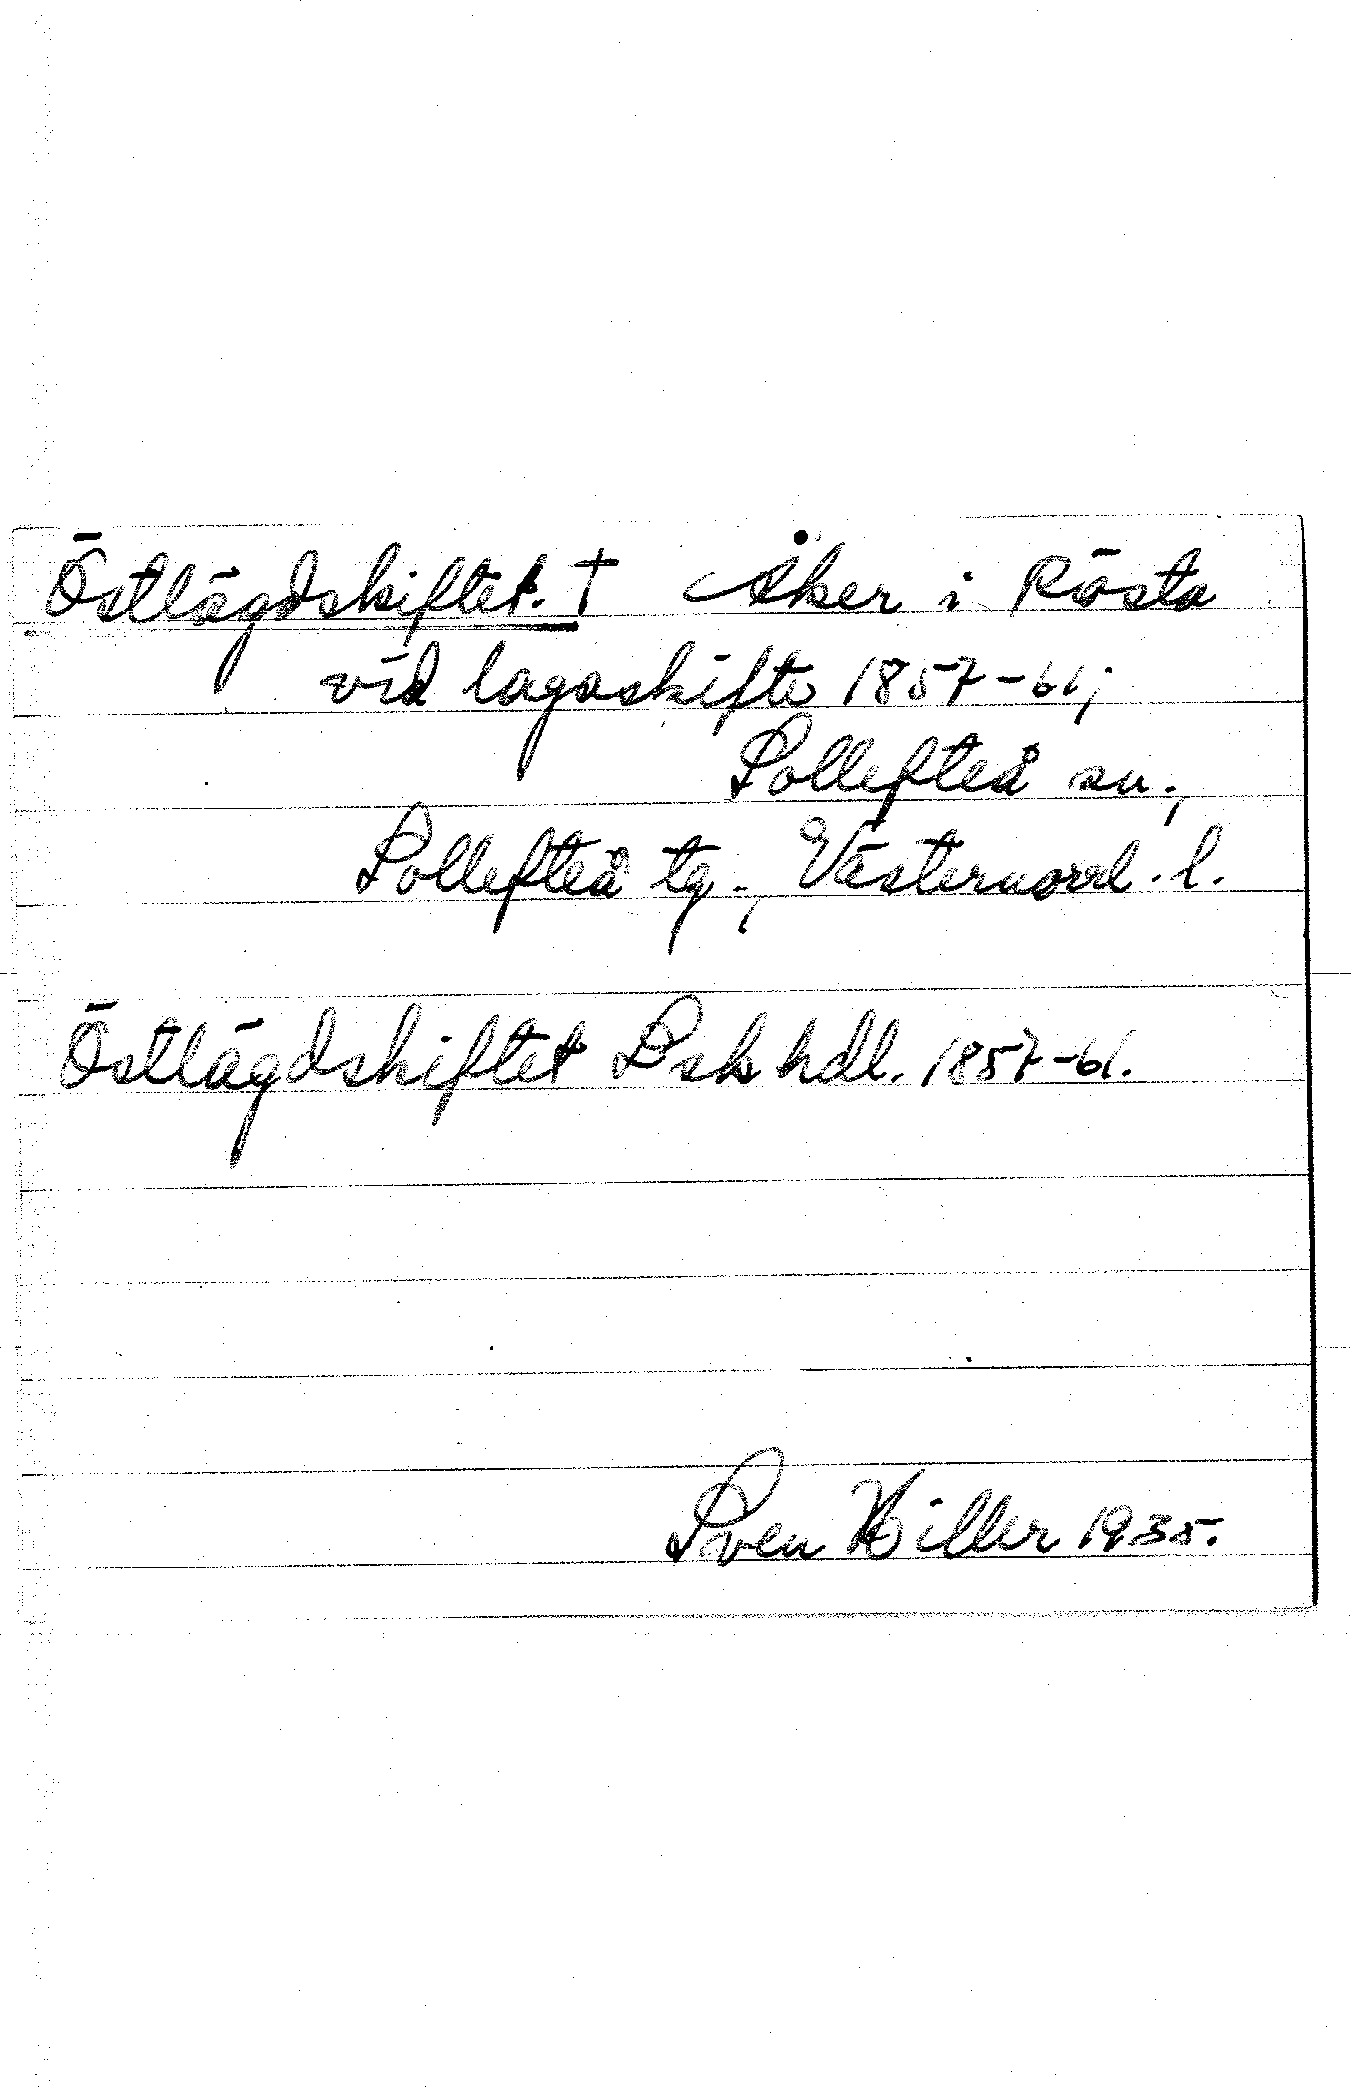 Östlägdskiftet. † Åker i Rösta
vid lagaskifte 1857-61;
Sollefteå sn.,
Sollefteå tg., Västernorrl. l.
Östlägdskiftet Lsk hdl. 1857-61.
Sven Hiller 1935.